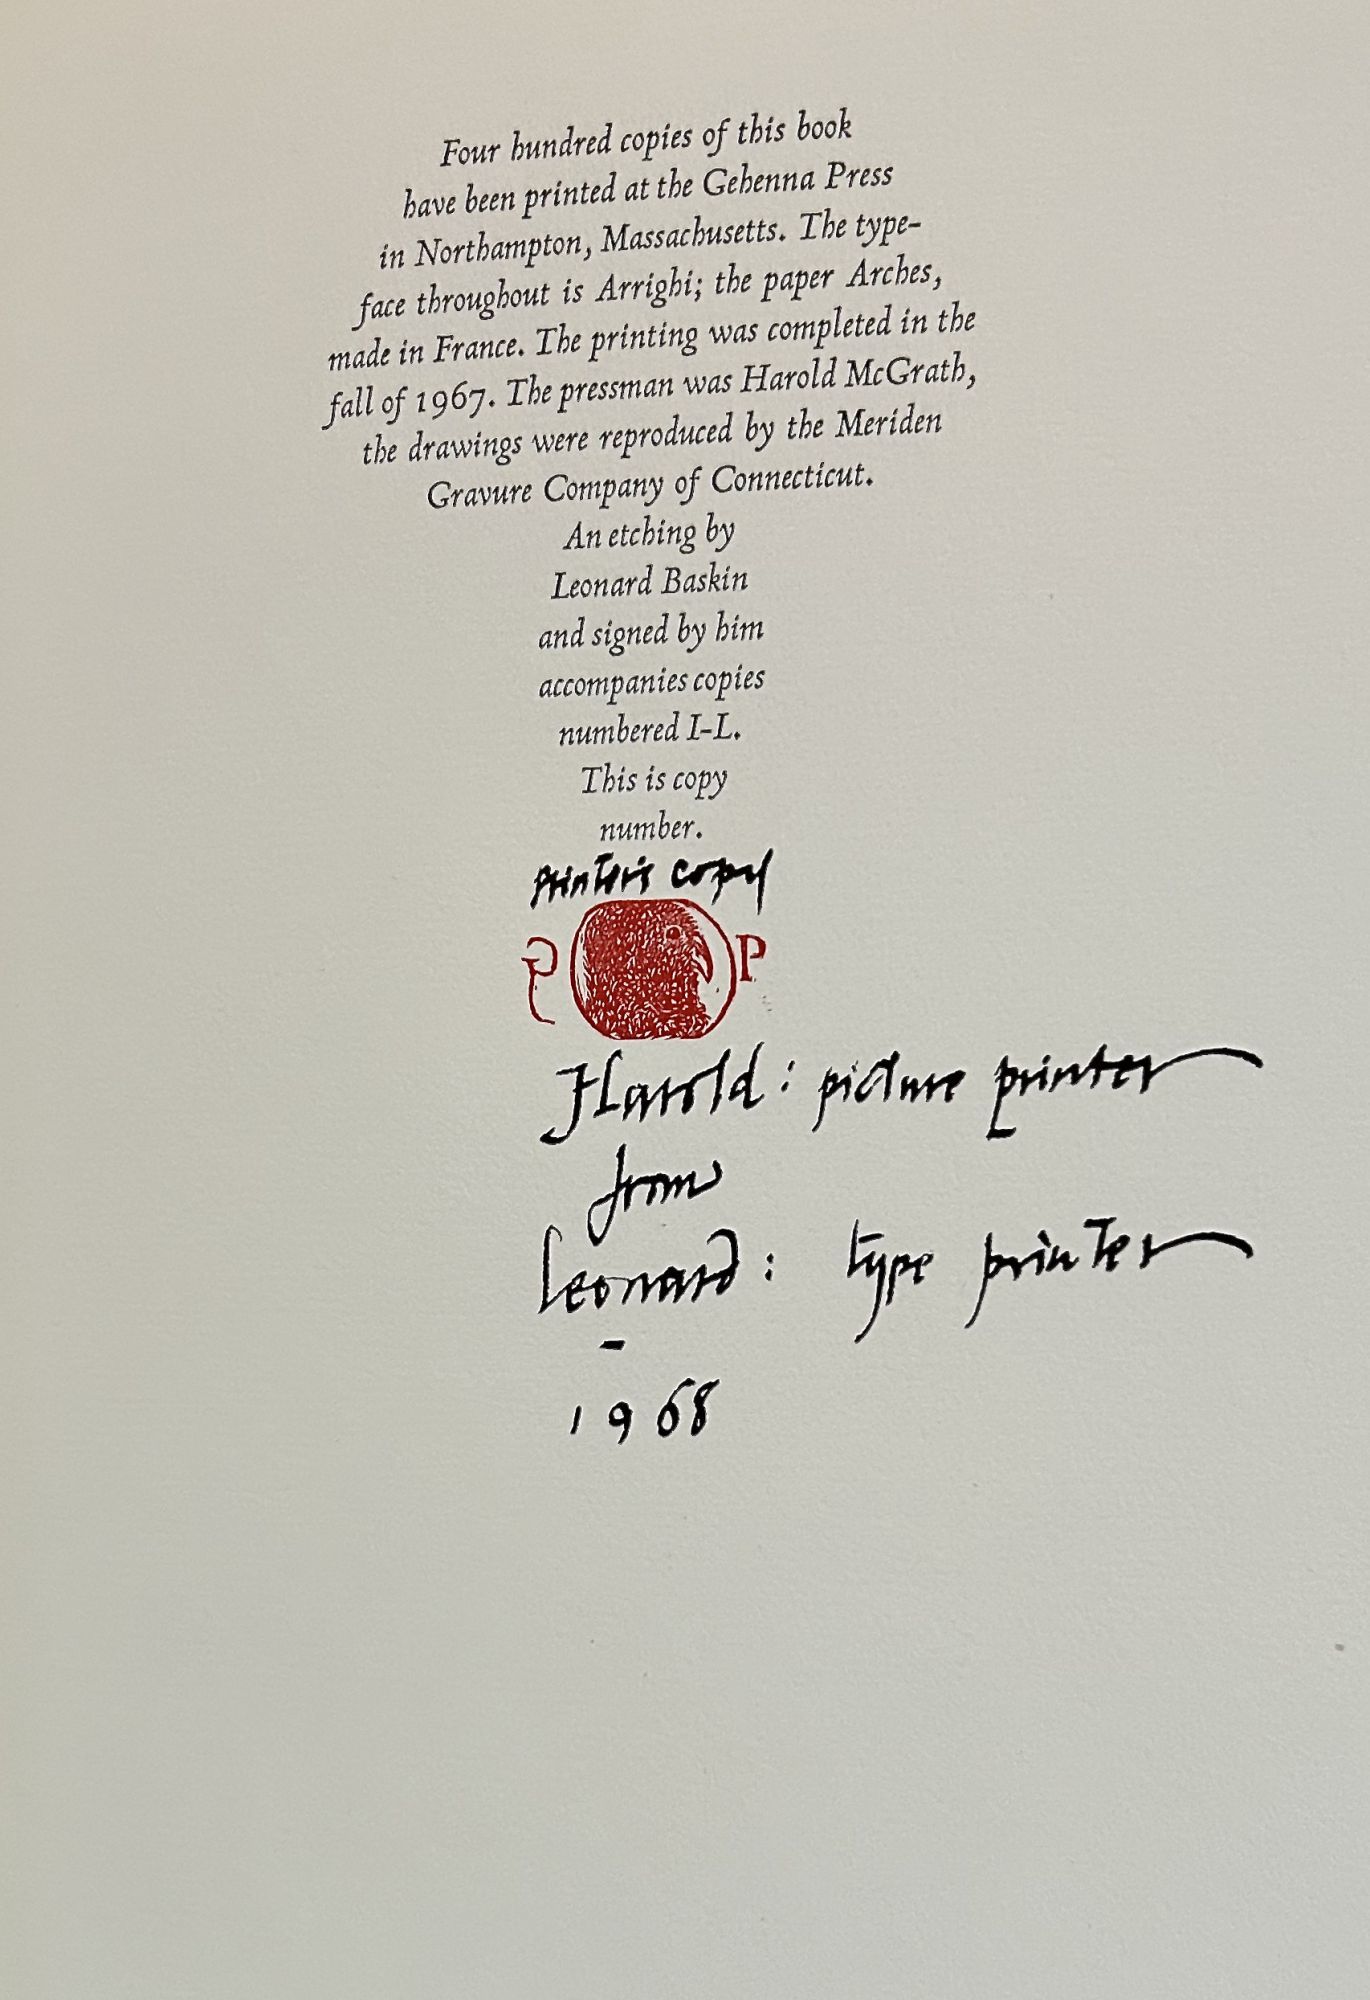 Four hundred copies of this book
have been printed at the Gehenna Press
in Northampton, Massachusetts. The type-
face throughout is Arrighi; the paper Arches,
made in France. The printing was completed in the
fall of 1967. The pressman was Harold McGrath,
the drawings were reproduced by the Meriden
Gravure Company of Connecticut.
An etching by
Leonard Baskin
and signed by him
accompanies copies
numbered I-L.
This is copy
number.
printer's copy
G P
Harold: picture printer
from
Leonard: type printer
-
1968